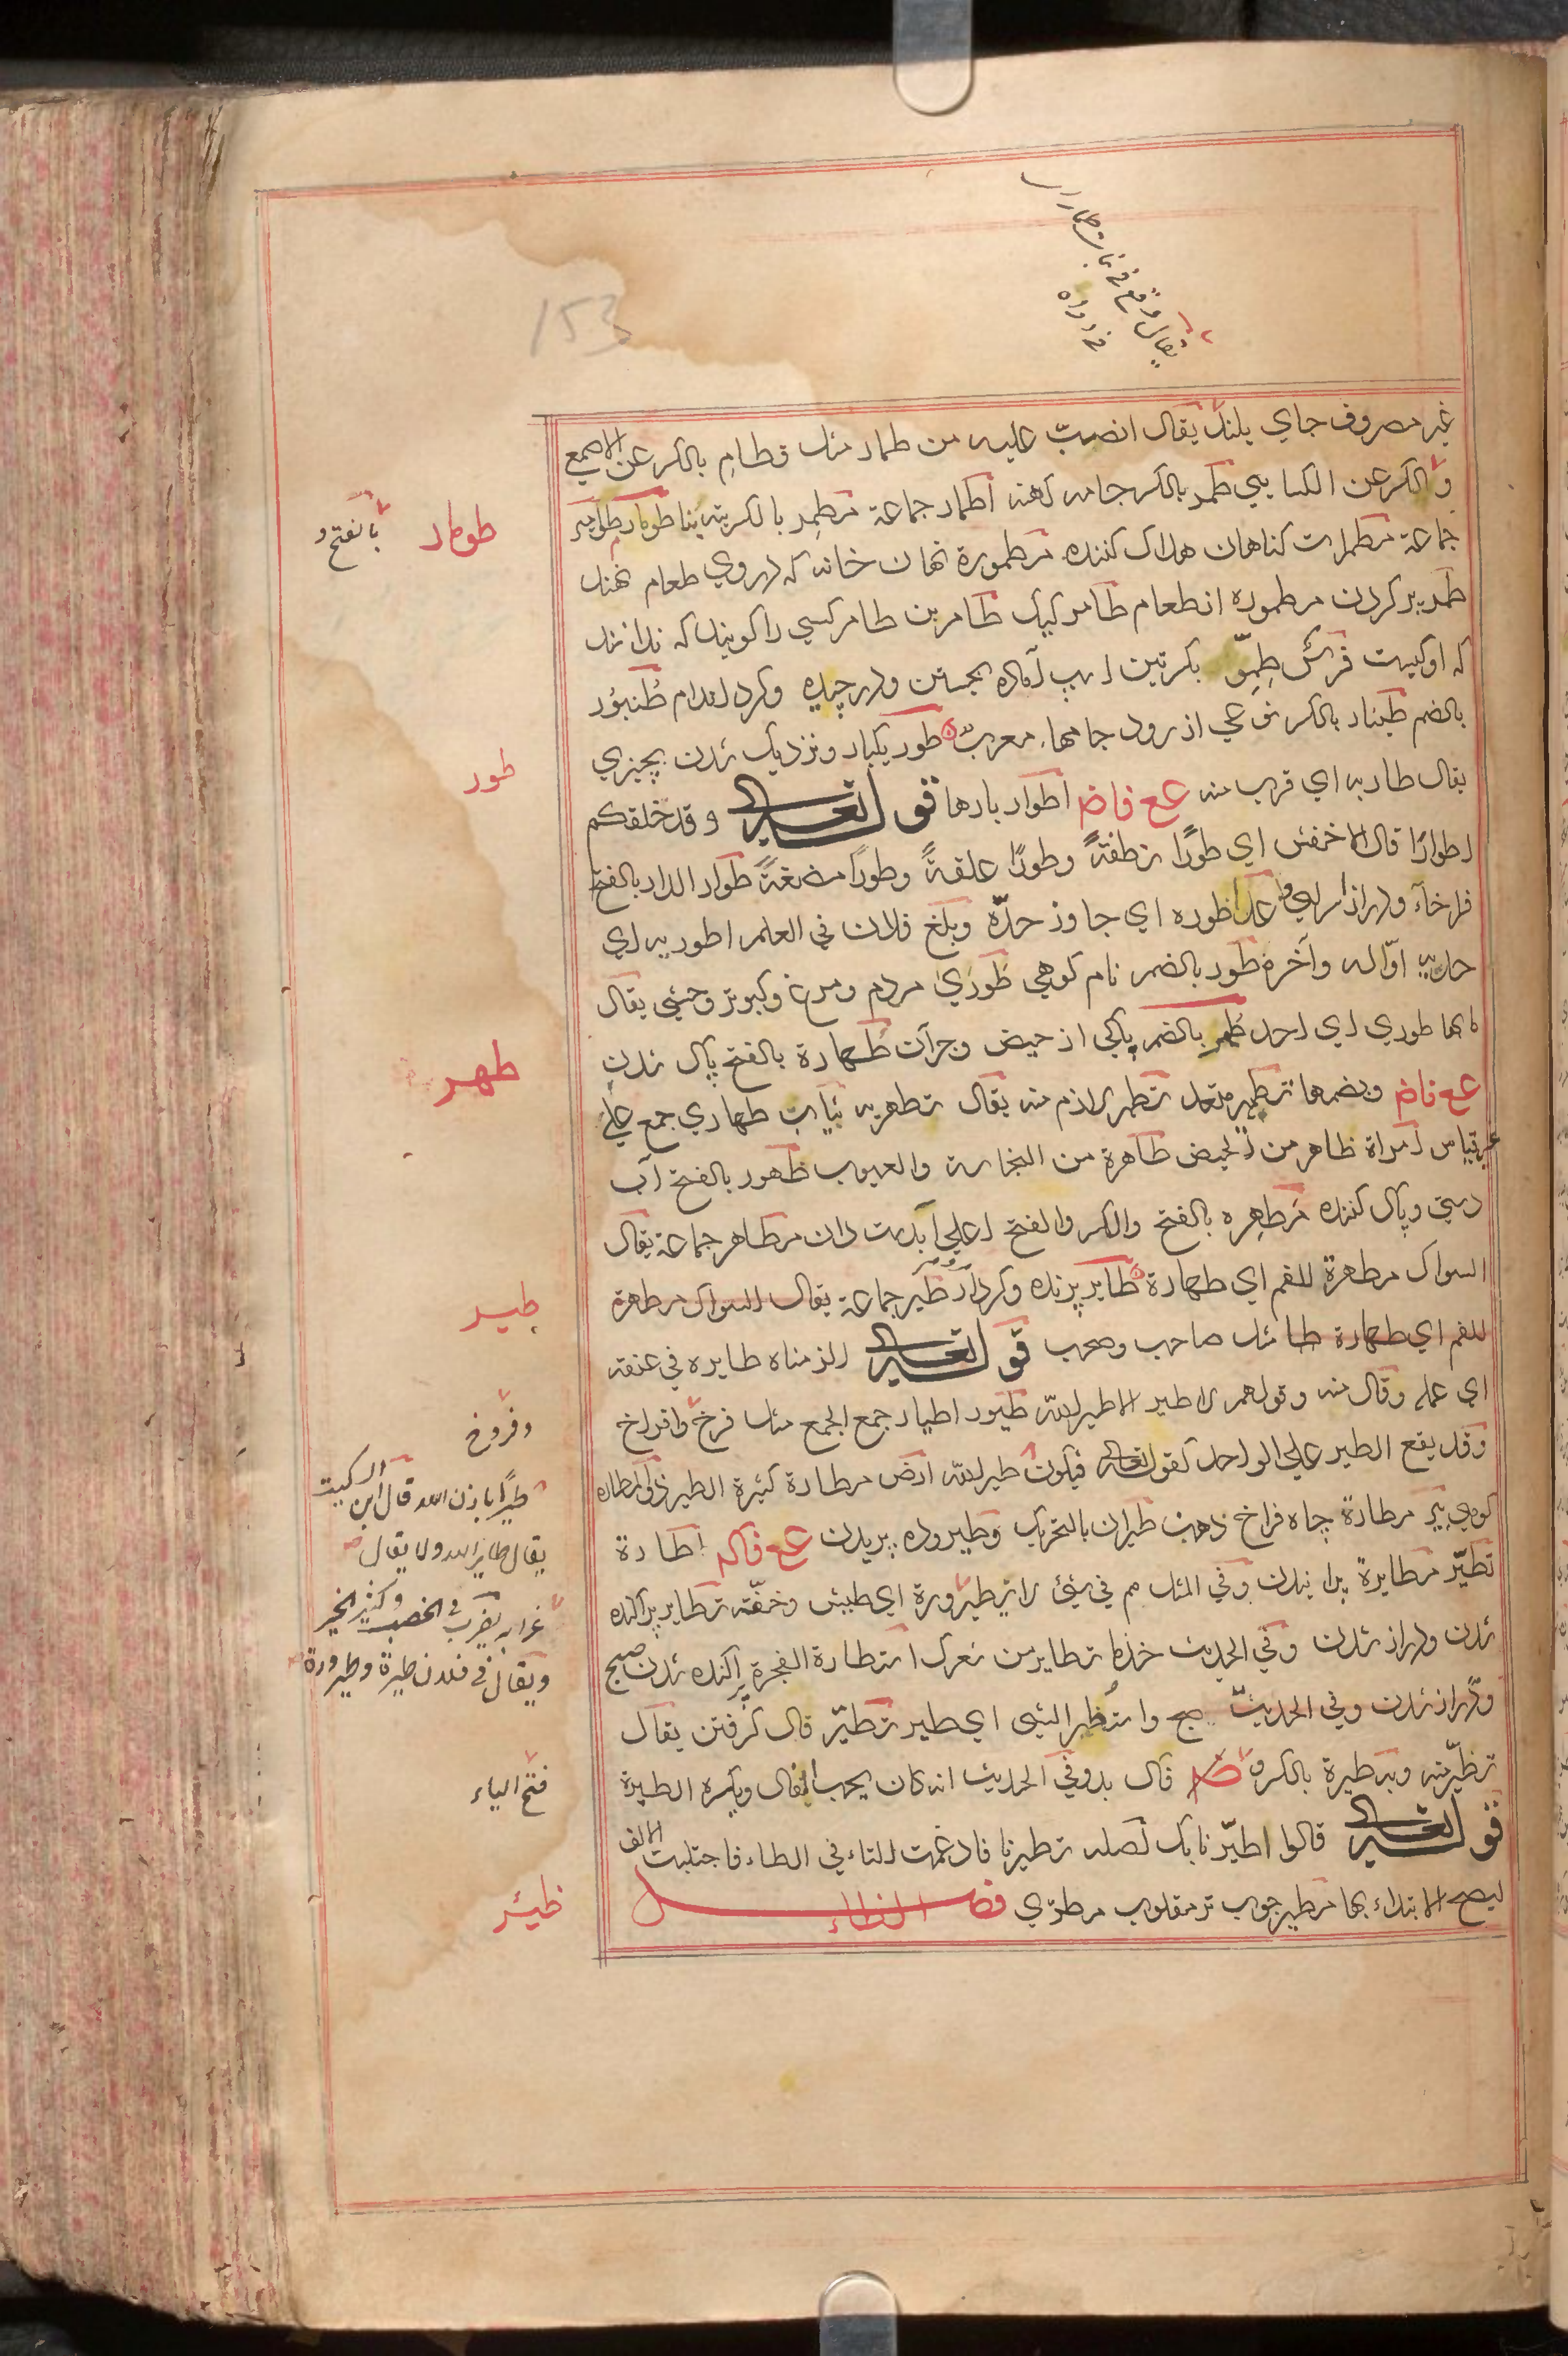 153
يقال وقع في بنات طمار
غير مصروف جاي بلند يقال انصبّ عليه من طمار مثل قطامِ بالكسر عن الاصمعي
وبالكسر عن الكسايي طمر بالكسر جامه كهنه اطمار جماعة مطمر بالكسر طومار طوامير
جماعة مطمرات كناهان هلاك كننده مطمورة نهان خانه كه در وي طعام نهند
طمير پر كردن مطموره از طعام طامر كيك طامر بن طامر كسي را كويند كه ندانند
كه او كيست فرس طِمِرّ بكسرتين اسپ آماده بجستن ودر چيده وكرد اندام طُنبُور
بالضم طنبار بالكسر نوعي از رود جامها معرب طور يكبار ونزديك شدن بچيزي
يقال طار به اي قرب منه ع ع فاض اطوار بارها قوله تعالى وقد خلقكم
اطوارًا قال الاخفش اي طورًا نطفةً وطورًا علقةً وطورًا مضغةً طوار الدار بالفتح
فراخآء ودراز سراي عدا طوره اي جاوز حدّه وبلغ فلان في العلم اطوريه اي
حديه اوّله وآخره طور بالضم نام كوهي طوري مردم ومرغ وكبوتر وحشي يقال
ما بها طوري اي احد طهر بالضم پاكي از حيض وجزآن طهارة بالفتح پاك شدن
ع ع فاض وبضمها تطهير متعد تطهر لازم منه يقال تطهر به ثياب طهاري جمع علي
غير قياس امراة طاهر من الحيض طاهرة من النجاسة والعيوب طهور بالفتح آب
دستي وپاك كننده مطهره بالفتح والكسر والفتح اعلي آبدست دان مطاهر جماعة يقال
السواك مطهرة للفم اي طهارة طاير پرنده وكردار طير جماعة يقال السواك مطهرة
للفم اي طهارة طا مثل صاحب وصحب قوله تعالى الزمناه طايره في عنقه
اي عمله وقال منه وقولهم لا طير الا طير الله طيور اطيار جمع الجمع مثل فرخ وافراخ
وقد يقع الطير علي الواحد كقوله تعالى فيكون طير الله ارض مطارة كثيرة الطير ذو المطاره
كوهي بير مطارة چاه فراخ دهن طيران بالتحريك وطيروده پريدن ع ع فاك اطارة
تطيّر مطايرة پرانيدن وفي المثل هم في شئ لا يطير وره اي طيش وخفّة تطاير پراكنده
شدن ودراز شدن وفي الحديث خذ ما تطاير من شعرك استطارة الفجر پراكنده شدن صبح
ودراز شدن وفي الحديث صح واستطير الشئ اي طير تطيّر فال كرفتن يقال
تطيّر منه وبه طيرة بالكسر و فال بد وفي الحديث انه كان يحب الفال ويكره الطيرة
قوله تعالى قالوا اطيّرنا بك اصله تطيرنا فادغمت التاء في الطاء فاجتلبت الالف
ليصح الابتداء بها مطير چوب تر مقلوب مطري فصل الظاء
طومار
بالفتح و
طور
طهر
طير
وفروخ
طيرًا باذن الله قال ابن السكيت
يقال طاير الله ولا يقال
غرابه يضرب في الخصب وكثير الخير
ويقال في فلان طيرة وطيرورة
فتح الياء
ظئر